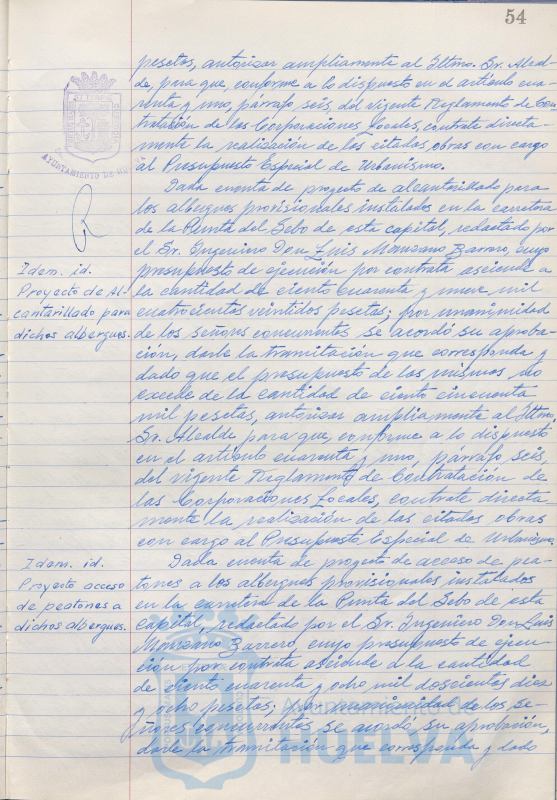 54
pesetas, autorizar ampliamente al Iltmo. Sr. Alcal-
de, para que, conforme a lo dispuesto en el artículo cua-
renta y uno, párrafo seis del vigente Reglamento de Con-
tratación de las Corporaciones Locales, contrate directa-
mente la realización de las citadas obras con cargo
al Presupuesto Especial de Urbanismo.
AYUNTAMIENTO DE HUELVA
Idem. id.
Proyecto de Al-
cantarillado para
dichos albergues.
Dada cuenta de proyecto de alcantarillado para
los albergues provisionales instalados en la carretera
de la Punta del Sebo de esta capital, redactado por
el Sr. Ingeniero Don Luis Manzano Barrero, cuyo
presupuesto de ejecución por contrata asciende a
la cantidad de ciento cuarenta y nueve mil
cuatrocientas veintidos pesetas; por unanimidad
de los señores concurrentes se acordó su aproba-
ción, darle la tramitación que corresponda y
dado que el presupuesto de las mismas no
excede de la cantidad de ciento cincuenta
mil pesetas, autorizar ampliamente al Iltmo.
Sr. Alcalde para que, conforme a lo dispuesto
en el artículo cuarenta y uno, párrafo seis
del vigente Reglamento de Contratación de
las Corporaciones Locales, contrate directa-
mente la realización de las citadas obras
con cargo al Presupuesto Especial de Urbanismo.
Idem. id.
Proyecto acceso
de peatones a
dichos albergues.
Dada cuenta de proyecto de acceso de pea-
tones a los albergues provisionales instalados
en la carretera de la Punta del Sebo de esta
Capital, redactado por el Sr. Ingeniero Don Luis
Manzano Barrero, cuyo presupuesto de ejecu-
ción por contrata asciende a la cantidad
de ciento cuarenta y ocho mil doscientas diez
y ocho pesetas; por unanimidad de los se-
ñores concurrentes se acordó su aprobación,
darle la tramitación que corresponda y dado
HUELVA